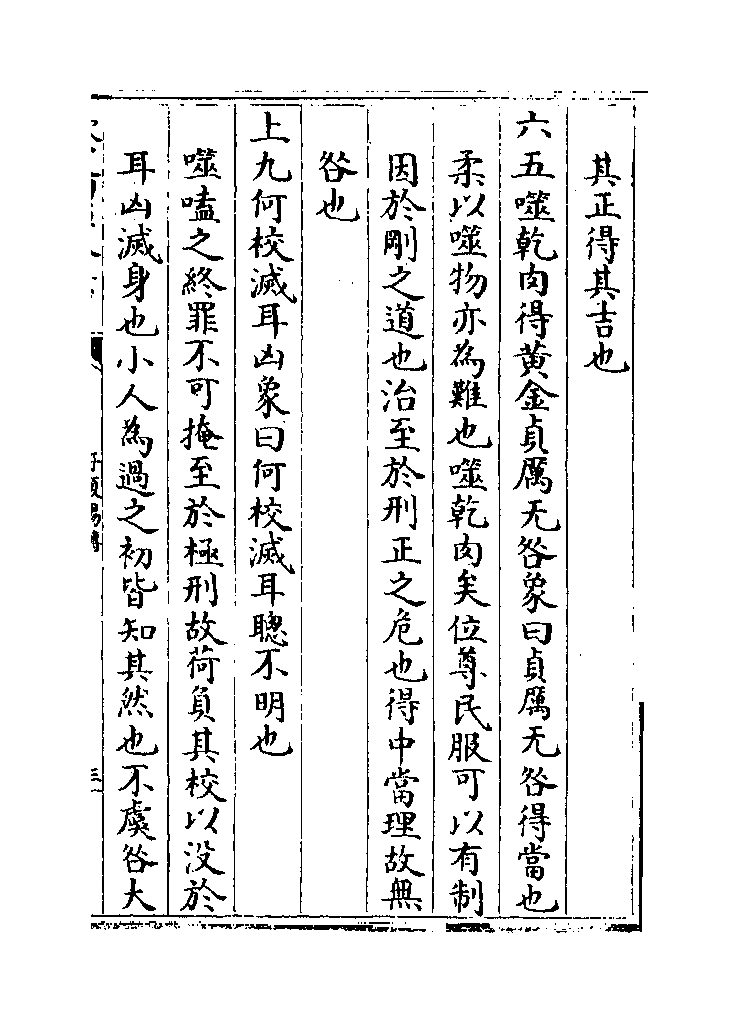 其正得其吉也
六五噬乾肉得黄金貞厲无咎象曰貞厲无咎得當也
柔以噬物亦為難也噬乾肉矣位尊民服可以有制
因於剛之道也治至於刑正之危也得中當理故無
咎也
上九何校滅耳凶象曰何校滅耳聰不明也
噬嗑之終罪不可掩至於極刑故荷負其校以没於
耳凶滅身也小人為過之初皆知其然也不虞咎大
子夏易傳